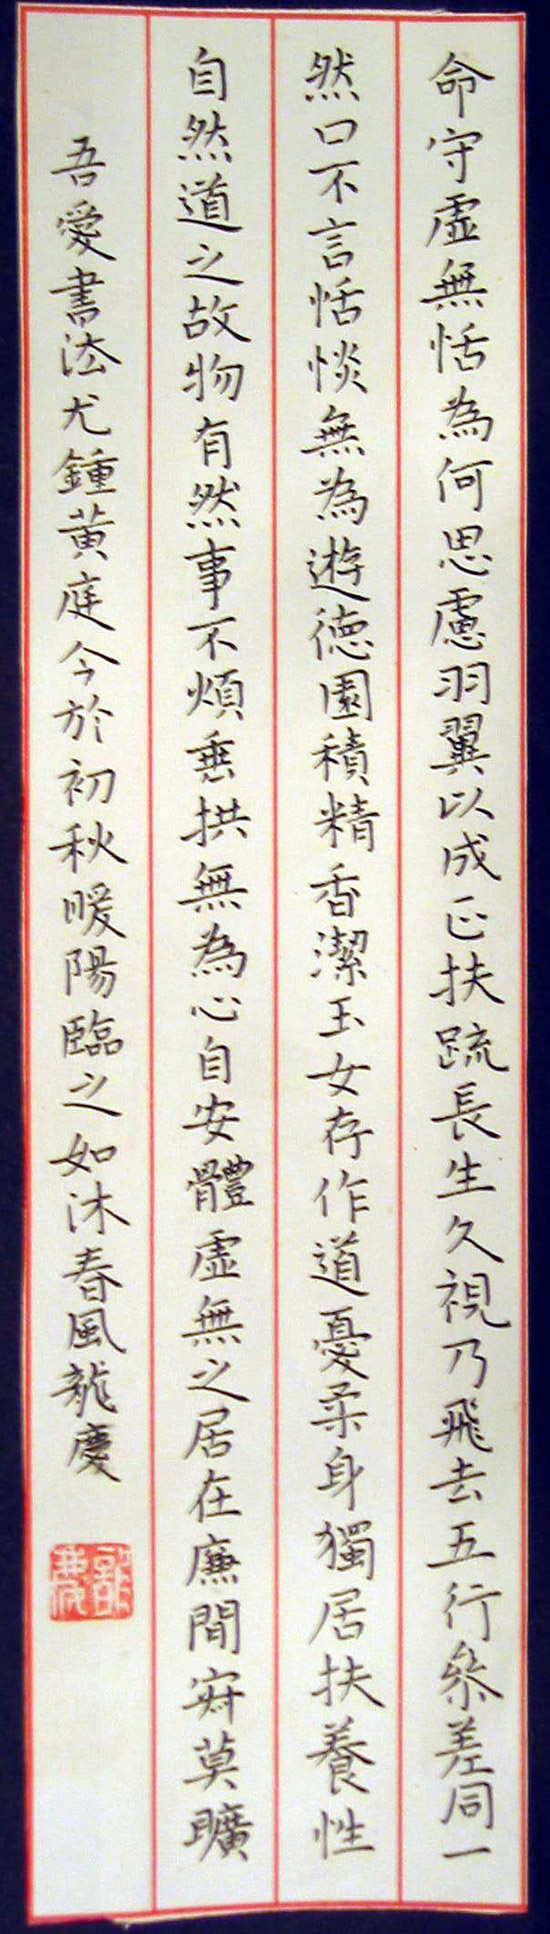 命守虛無恬為何思慮羽翼以成正扶疏長生久視乃飛去五行參差同一
然口不言恬惔無為遊德園積精香潔玉女存作道憂柔身獨居扶養性
自然道之故物有然事不煩垂拱無為心自安體虛無之居在廉間寂莫曠
吾愛書法尤鍾黃庭今於初秋暖陽臨之如沐春風龍慶
龍慶